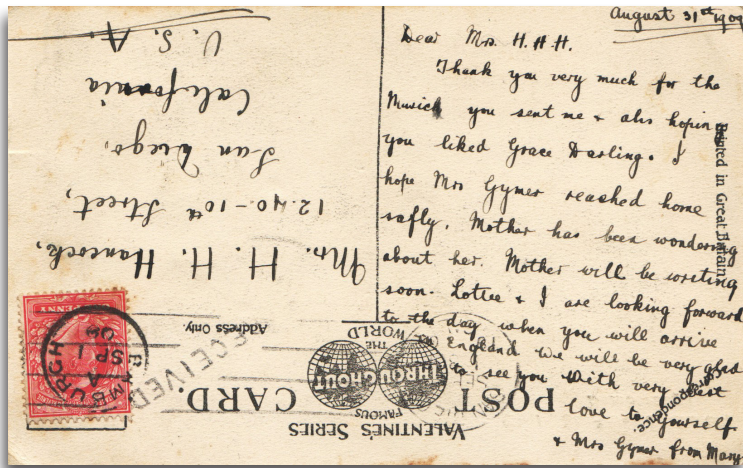 August 31st 1909
Dear Mrs. H. H. H.
Thank you very much for the
Musick you sent me & also hoping
you liked Grace Darling. I
hope Mrs Gymer reached home
safly. Mother has been wondering
about her. Mother will be writing
soon. Lottie & I are looking forward
to the day when you will arrive
in England we will be very glad
to see you With very best
love to yourself
& Mrs Gymer from Mary
Printed in Great Britain
Correspondence.
VALENTINE'S SERIES
FAMOUS
THROUGHOUT
THE WORLD
POST CARD.
Address Only.
Mrs. H. H. Hancock,
1240-10th Street,
San Diego,
California
U. S. A.
RECEIVED
BAMBURGH
A
SP 1
09
PENNY